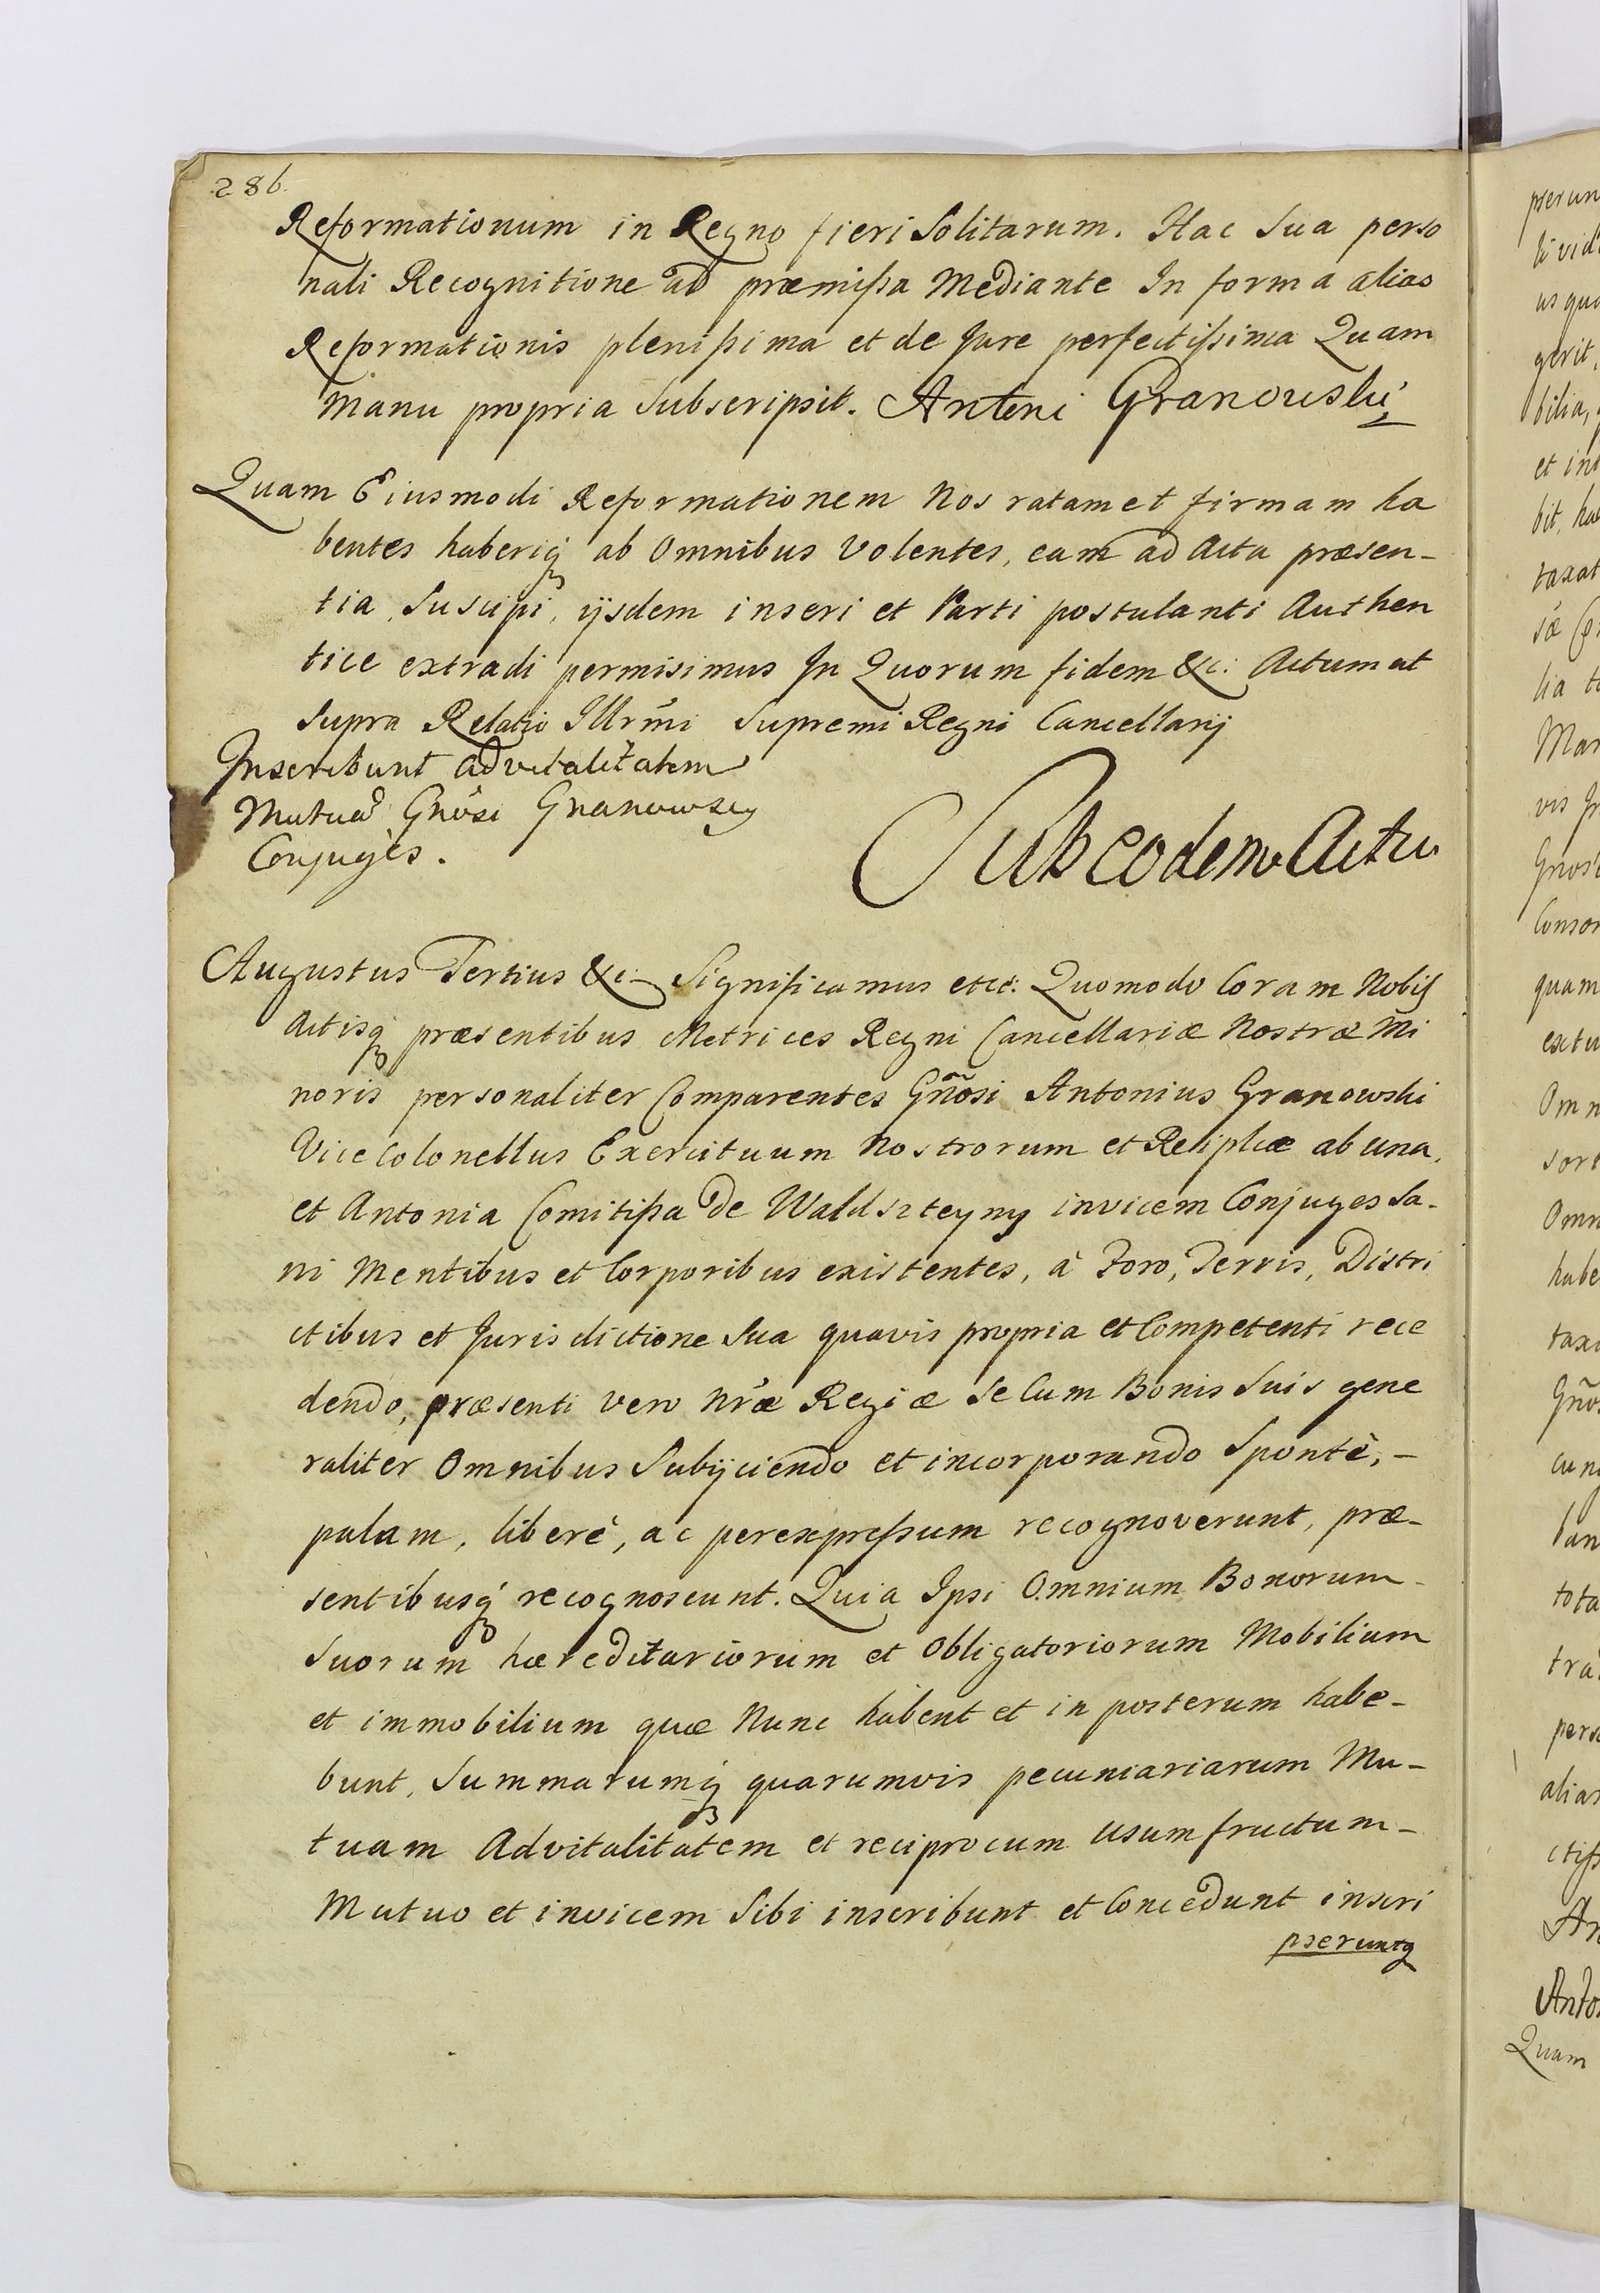 286.
Reformationum in Regno fieri Solitarum. Hac Sua perso
nali Recognitione ad præmißa Mediante In forma alias
Reformationis plenißima et de Jure perfectißima Quam
Manu propria Subscripsit. Antoni Granowski
Quam Eiusmodi Reformationem Nos ratam et firmam ha
bentes haberiq́ ab Omnibus Volentes, eam ad Acta præsen-
tia Suscipi, ijsdem inseri et Parti postulanti Authen
tice extradi permisimus In Quorum fidem &c: Actum ut
Supra Relatio Illrm̃i Supremi Regni Cancellarij
Inscribunt advitalitatem
Mutuã Gnõsi Granowscy
Conjuges.
Sub eodem Actu
Augustus Tertius &c. Significamus etc: Quomodo Coram Nobis
Actisq́ præsentibus Metrices Regni Cancellariæ Nostræ Mi
noris personaliter Comparentes Gñosi Antonius Granowski
Vice Colonellus Exercituum Nostrorum et Reiplicæ ab una,
et Antonia Comitißa De Waldszteyny invicem Conjuges Sa-
ni Mentibus et Corporibus existentes, à Foro, Terris, Distri
ctibus et Jurisdictione Sua quavis propria et Competenti rece
dendo, præsenti vero Nr̃æ Regiæ Se Cum Bonis Suis gene
raliter Omnibus Subijciendo et incorporando Spontè, -
palam, liberè, ac per expreßum recognoverunt, præ-
sentibusq́ recognoscunt. Quia Ipsi Omnium Bonorum
Suorum hæreditariorum et Obligatoriorum Mobilium
et immobilium quæ Nunc habent et in posterum habe-
bunt, Summarumq́ quarumvis pecuniariarum Mu-
tuam Advitalitatem et reciprocum Usumfructum -
Mutuo et invicem Sibi inscribunt et Concedunt inscri
pseruntq